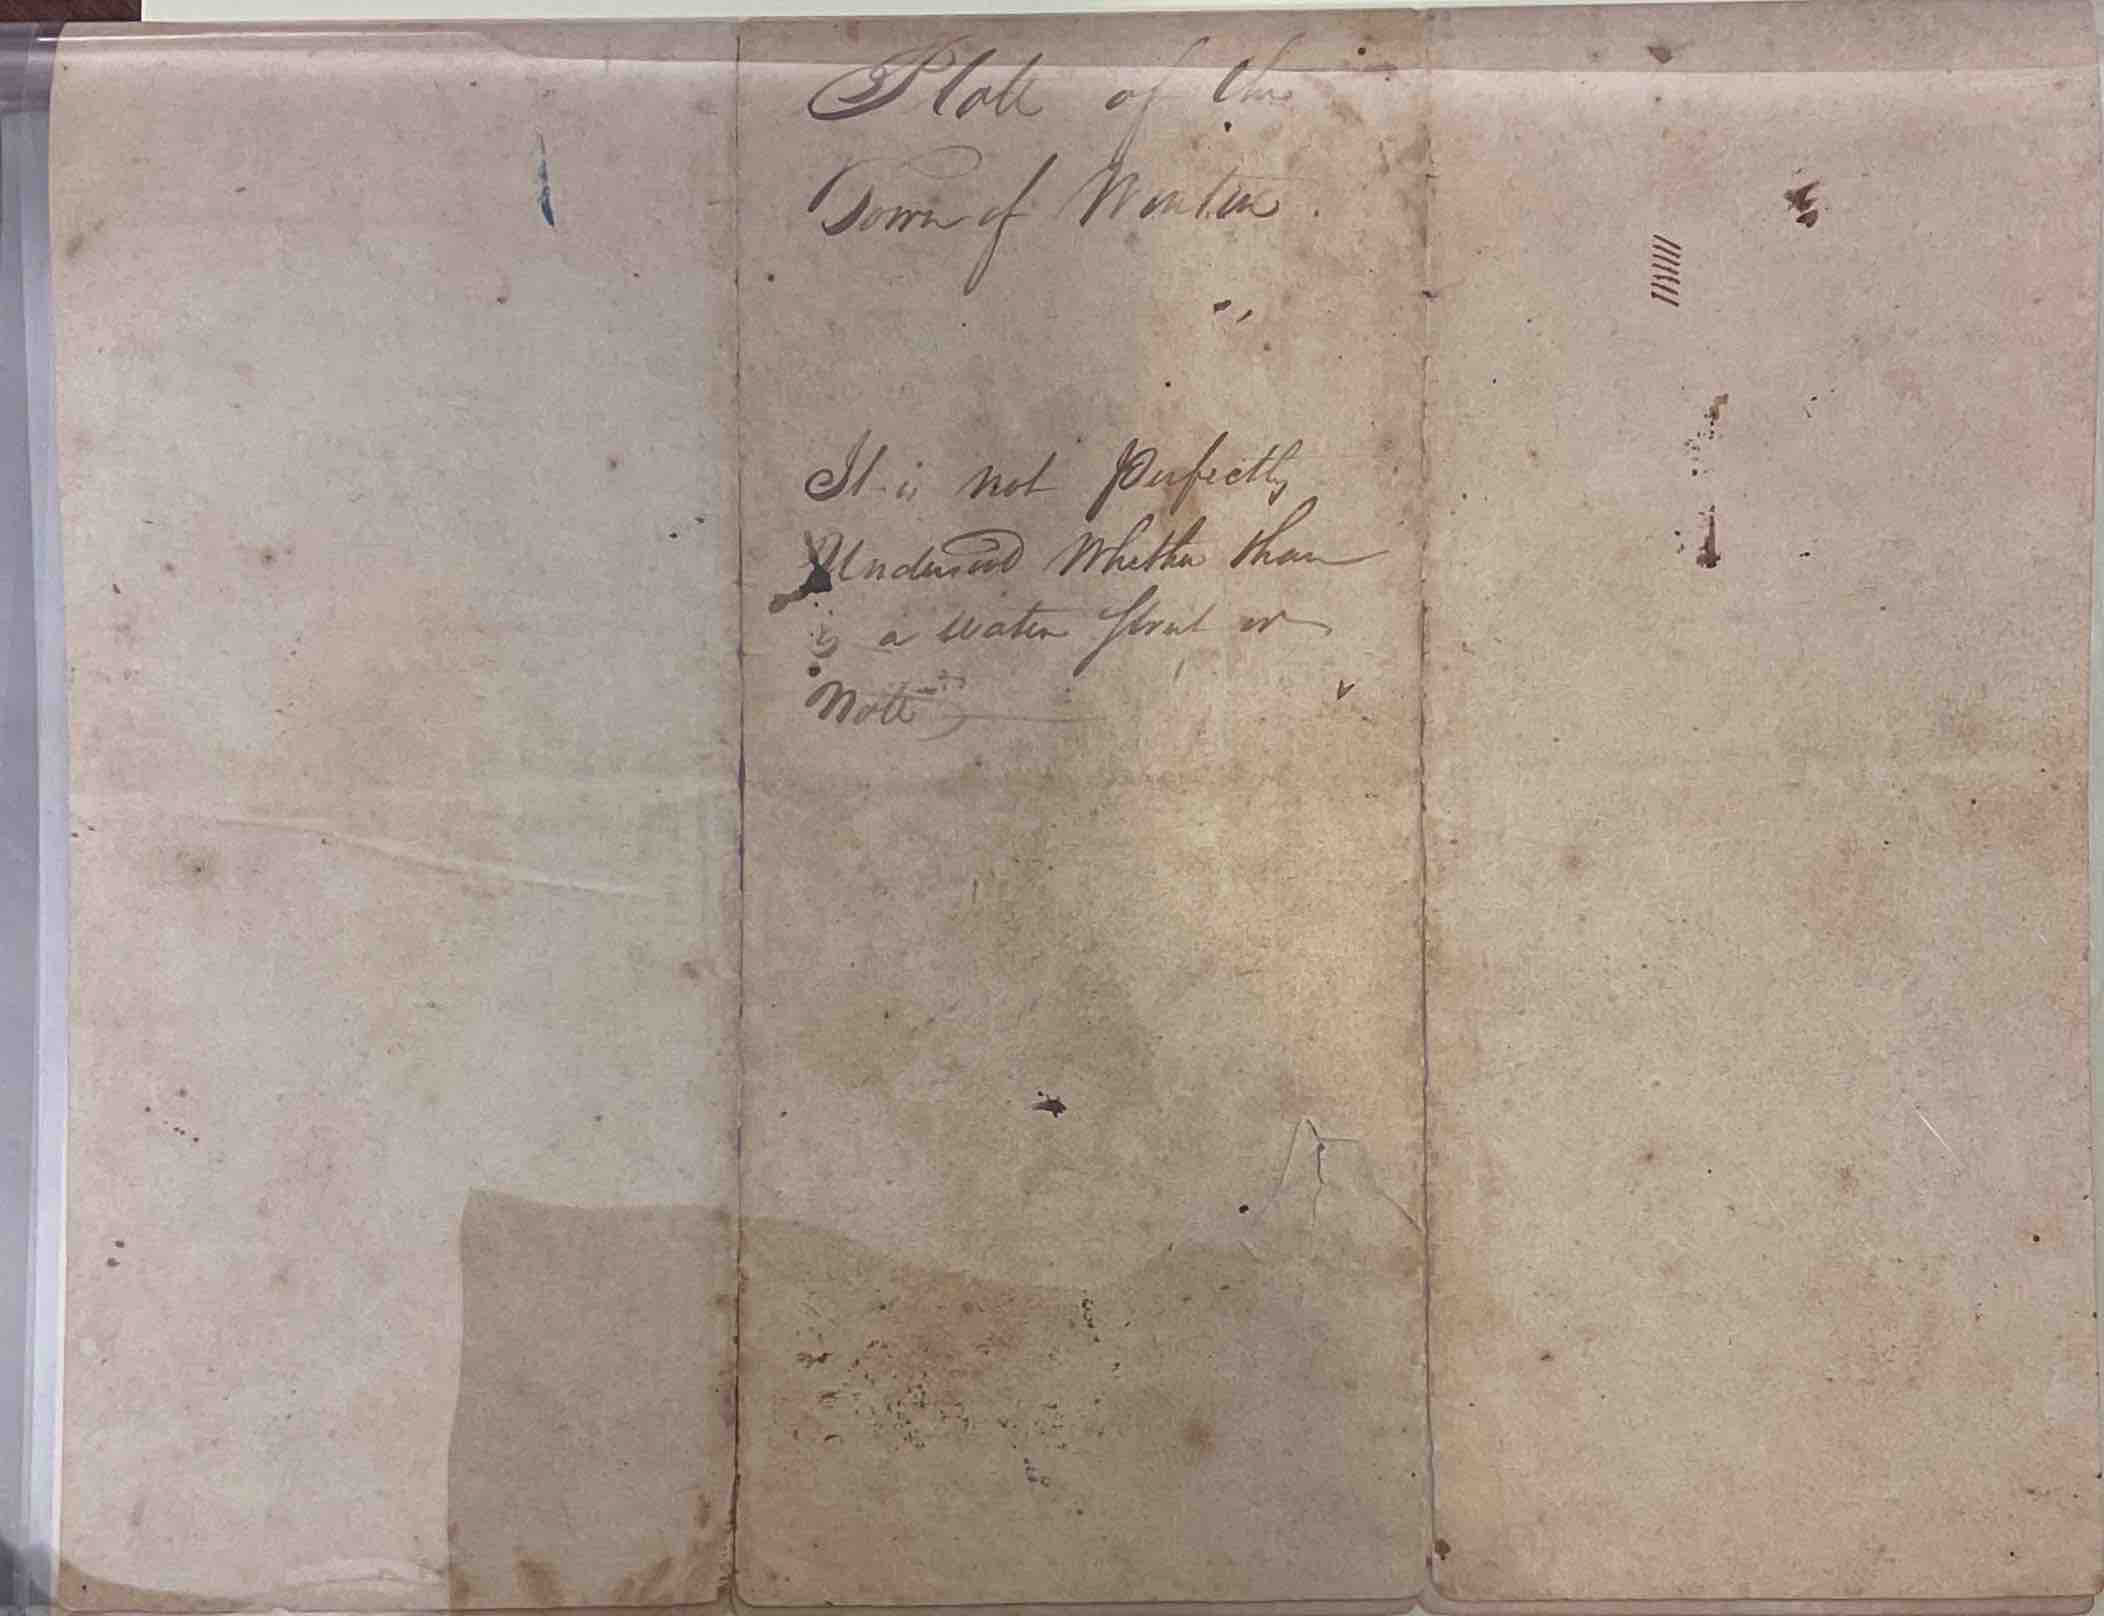 Platt of the
Town of Winton.
It is not Perfectly
Understood Whether thare
is a water street or
Nott